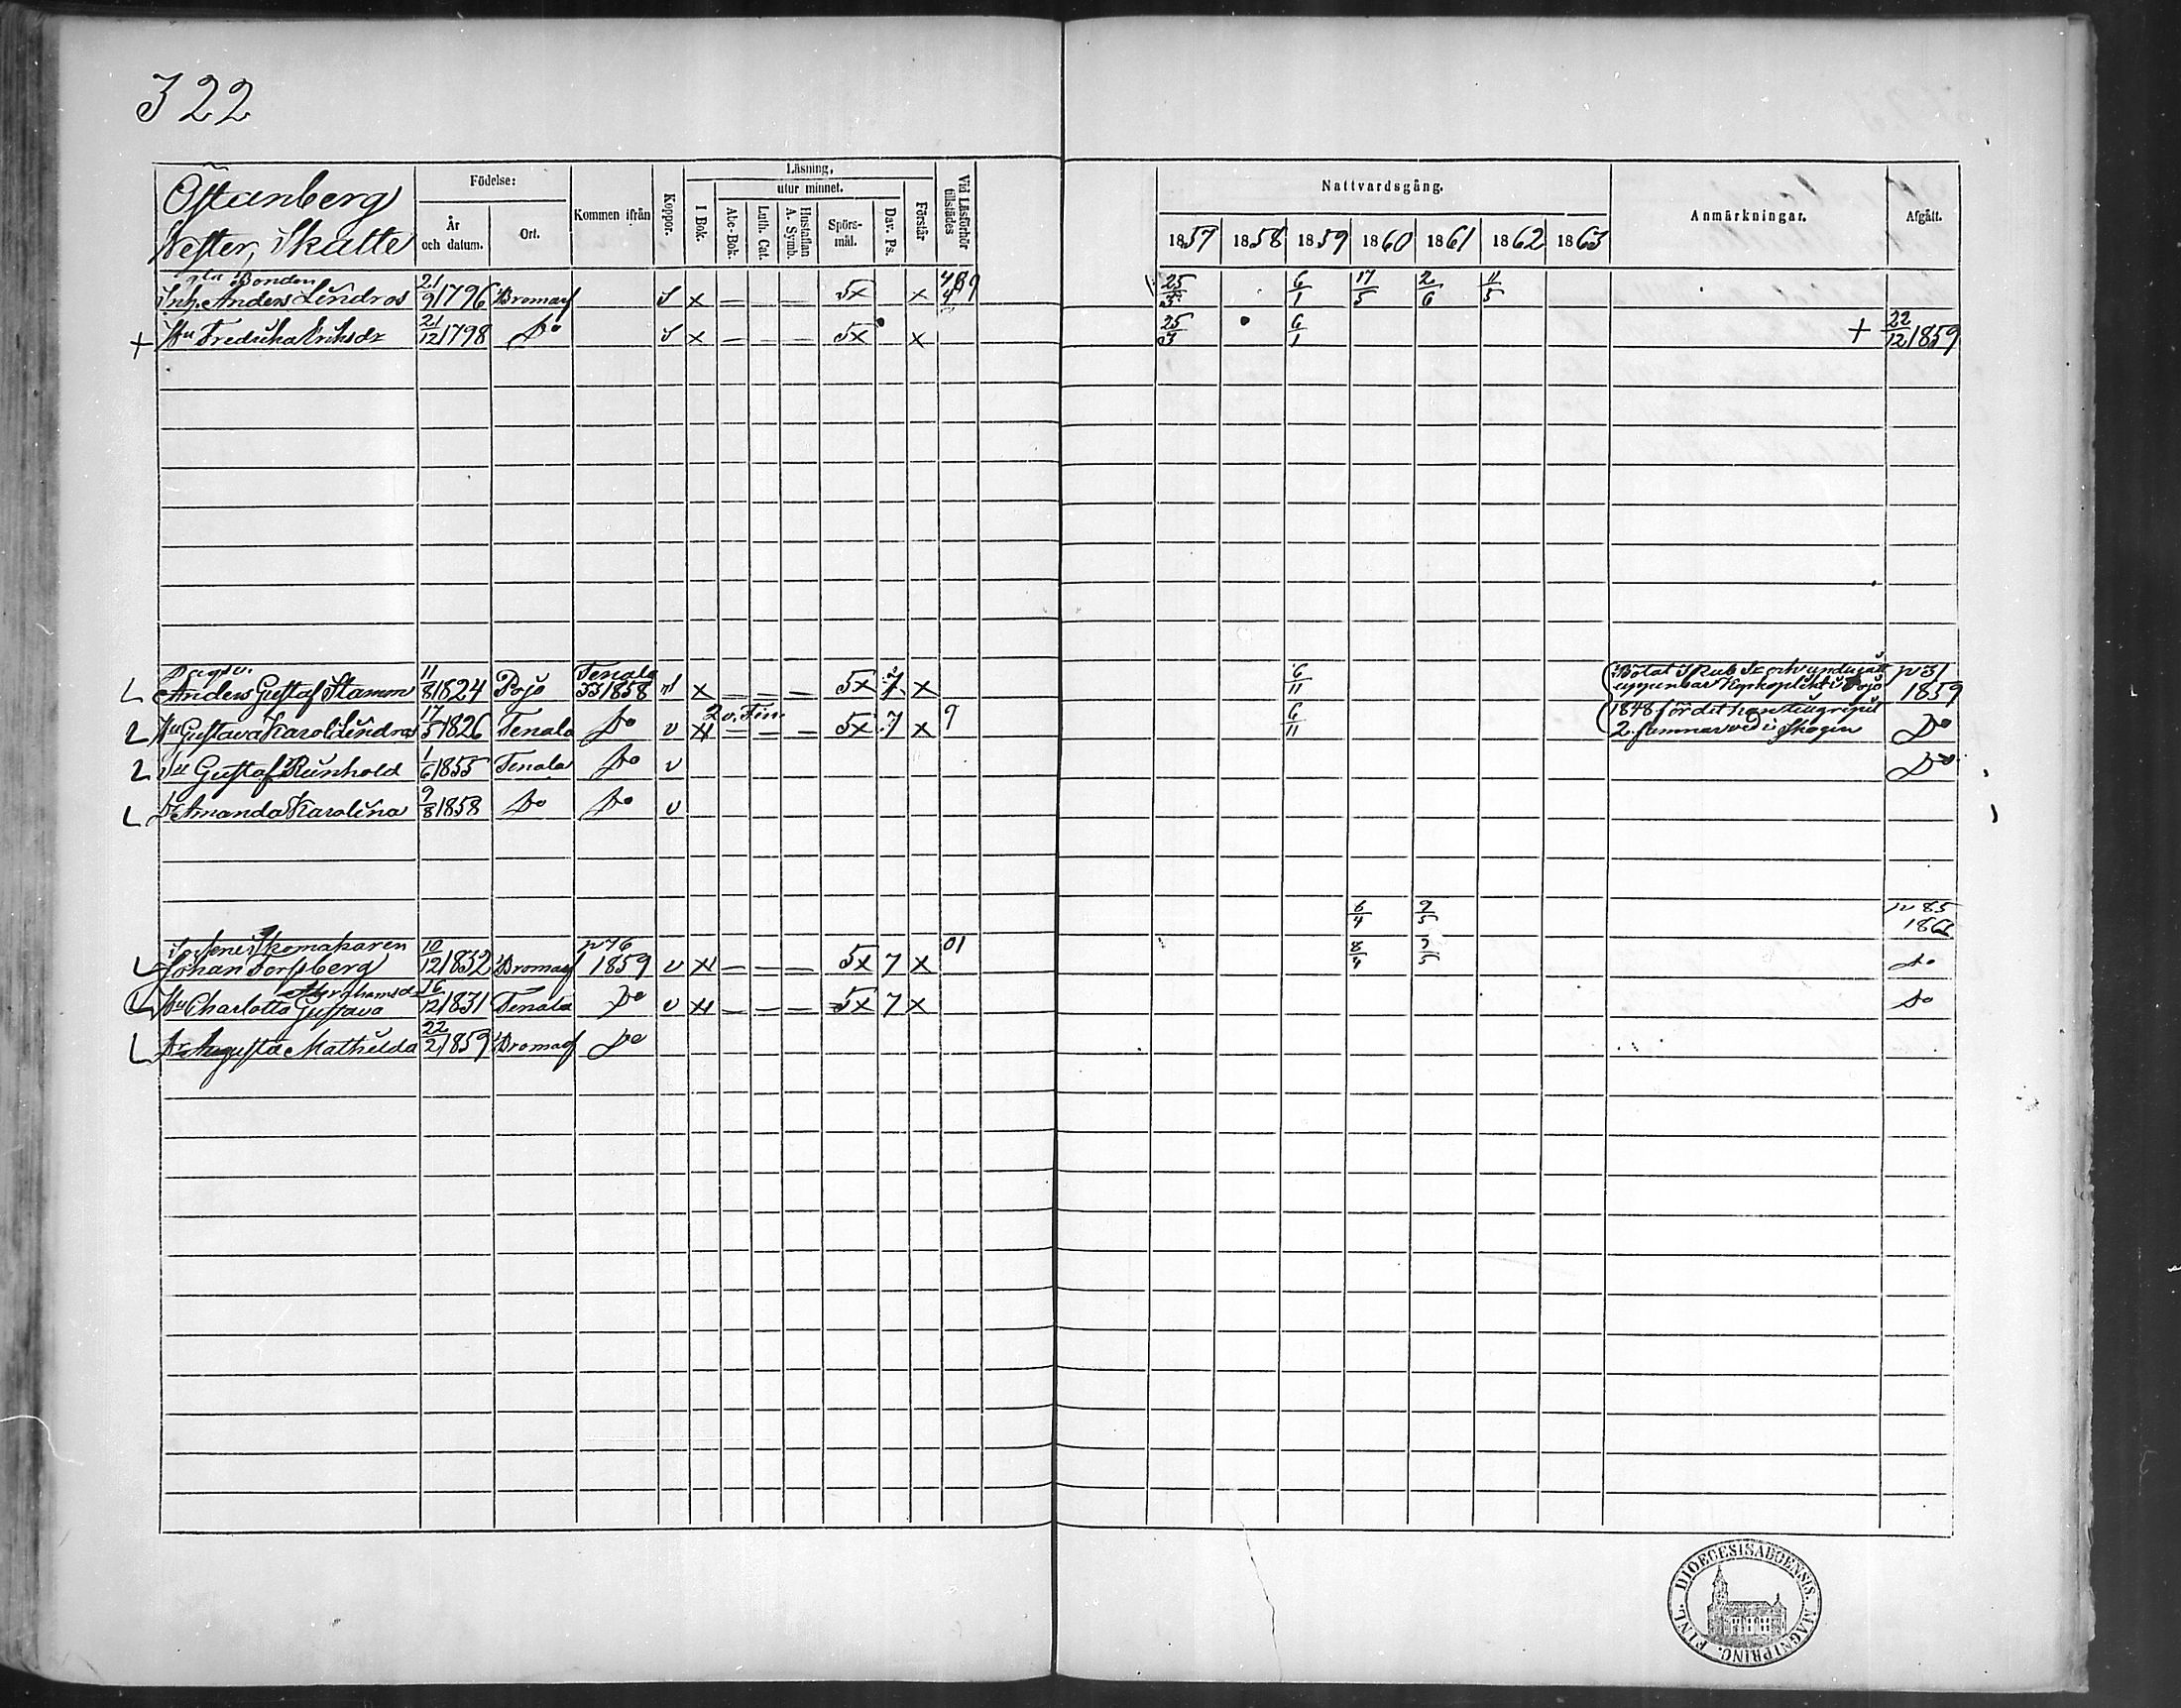 322
Östanberg
Wester, Skatte
Födelse:
År och datum.
Ort.
Kommen ifrån
Koppor.
Läsning,
I Bok.
utur minnet.
Abc-Bok.
Luth. Cat.
Hustaflan A. Symb.
Spörsmål.
Dav. Ps.
Förstår
Vid Läsförhör tillstädes
Nattvardsgång.
1857 1858 1859 1860 1861 1862 1863
Anmärkningar.
Afgått.
Bonden
Inh. Anders Lindros 21/9 1796 Bromarf S x — — — 5x x 25/3 6/1 17/5 2/6 11/5
+ Hu Fredrika Eriksdr 21/12 1798 Do S x — — — 5x x 25/3 6/1 + 22/12 1859
L Anders Gustaf Stamm 11/8 1824 Pojo Tenala 33 1858 x — — — 5x 7 x 6/11 p 31 1859
Bötat 3 Rub Sr och undergått
uppenbar Kyrkoplikt i Pojo
2 Hu Gustava Karol. Lindros 17/5 1826 Tenala Do v x — — — 5x 7 x 9 6/11 Do
2 v. Fin.
1848 för det han tillgripit
2 famnar ved i skogen
2 Gustaf Reinhold 1/6 1855 Tenala Do v Do
L Dr Amanda Karolina 9/8 1858 Do Do v
6/4 9/5 p 85 186
Skomakaren
L Johan Forssberg 10/12 1832 Bromarf p 76 1859 v x — — — 5x 7 x 01 8/4 7/5 Do
Abrahamsdr
L Hu Charlotta Gustava 16/12 1831 Tenala Do v x — — — 5x 7 x Do
L Dr Augusta Mathilda 22/2 1859 Bromarf Do
FINL. DIOECESIS ABOENSIS. MAGNI PRINC.